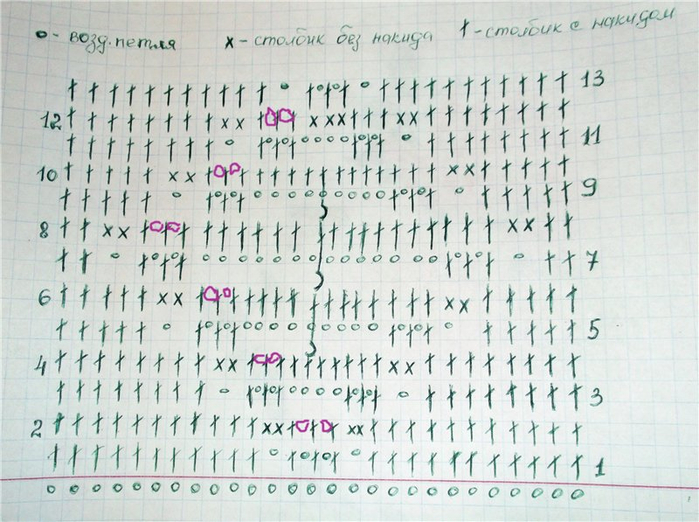 o - возд. петля x - столбик без накида † - столбик с накидом
13
12
11
10
9
8
7
6
5
4
3
2
1